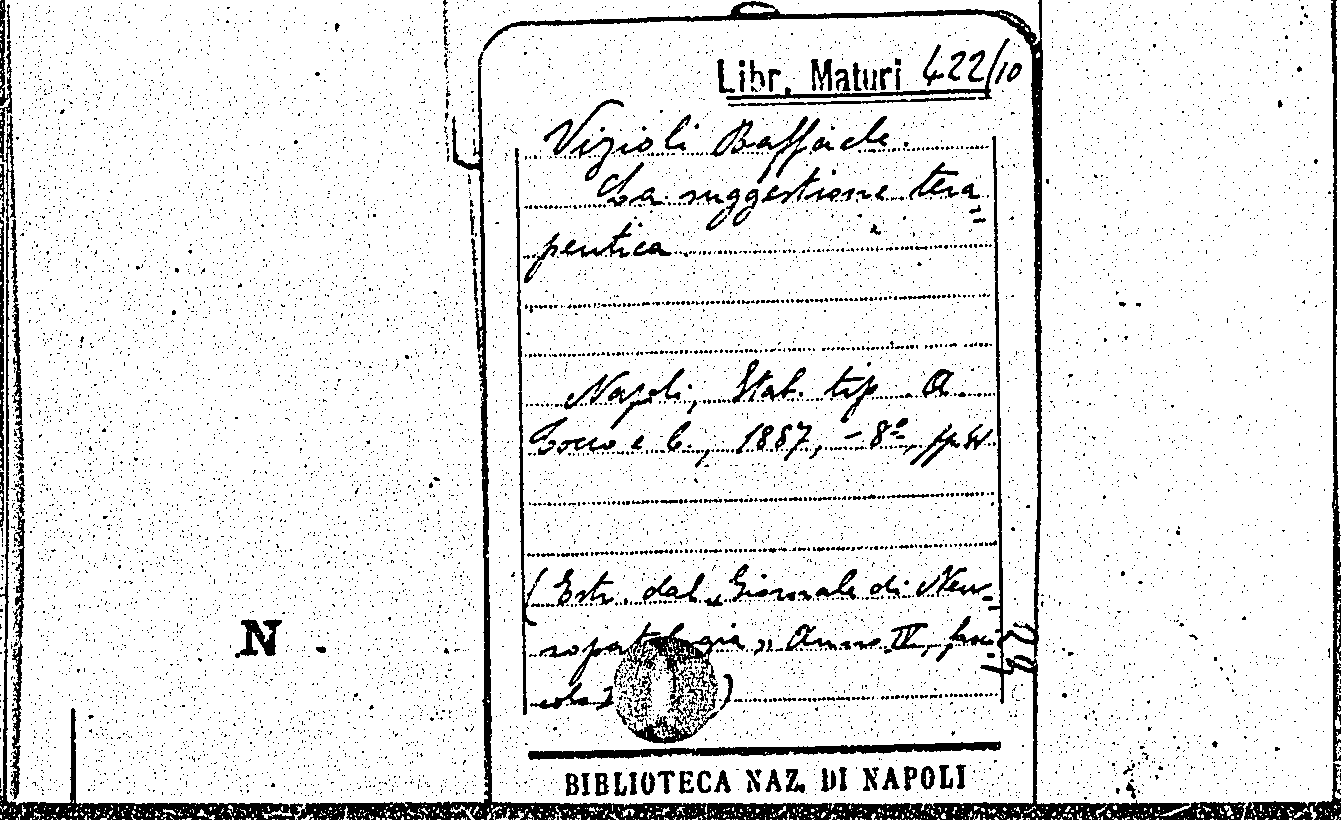 Libr. Maturi 422/10
Vizioli Raffaele.
La suggestione tera
peutica
Napoli, Stab. tip. A.
Cocco e C., 1887, - 8º pp.
(Estr. dal „Giornale di Neu-
ropatologia„ Anno IV, fasci
colo
)
N.
BIBLIOTECA NAZ. DI NAPOLI